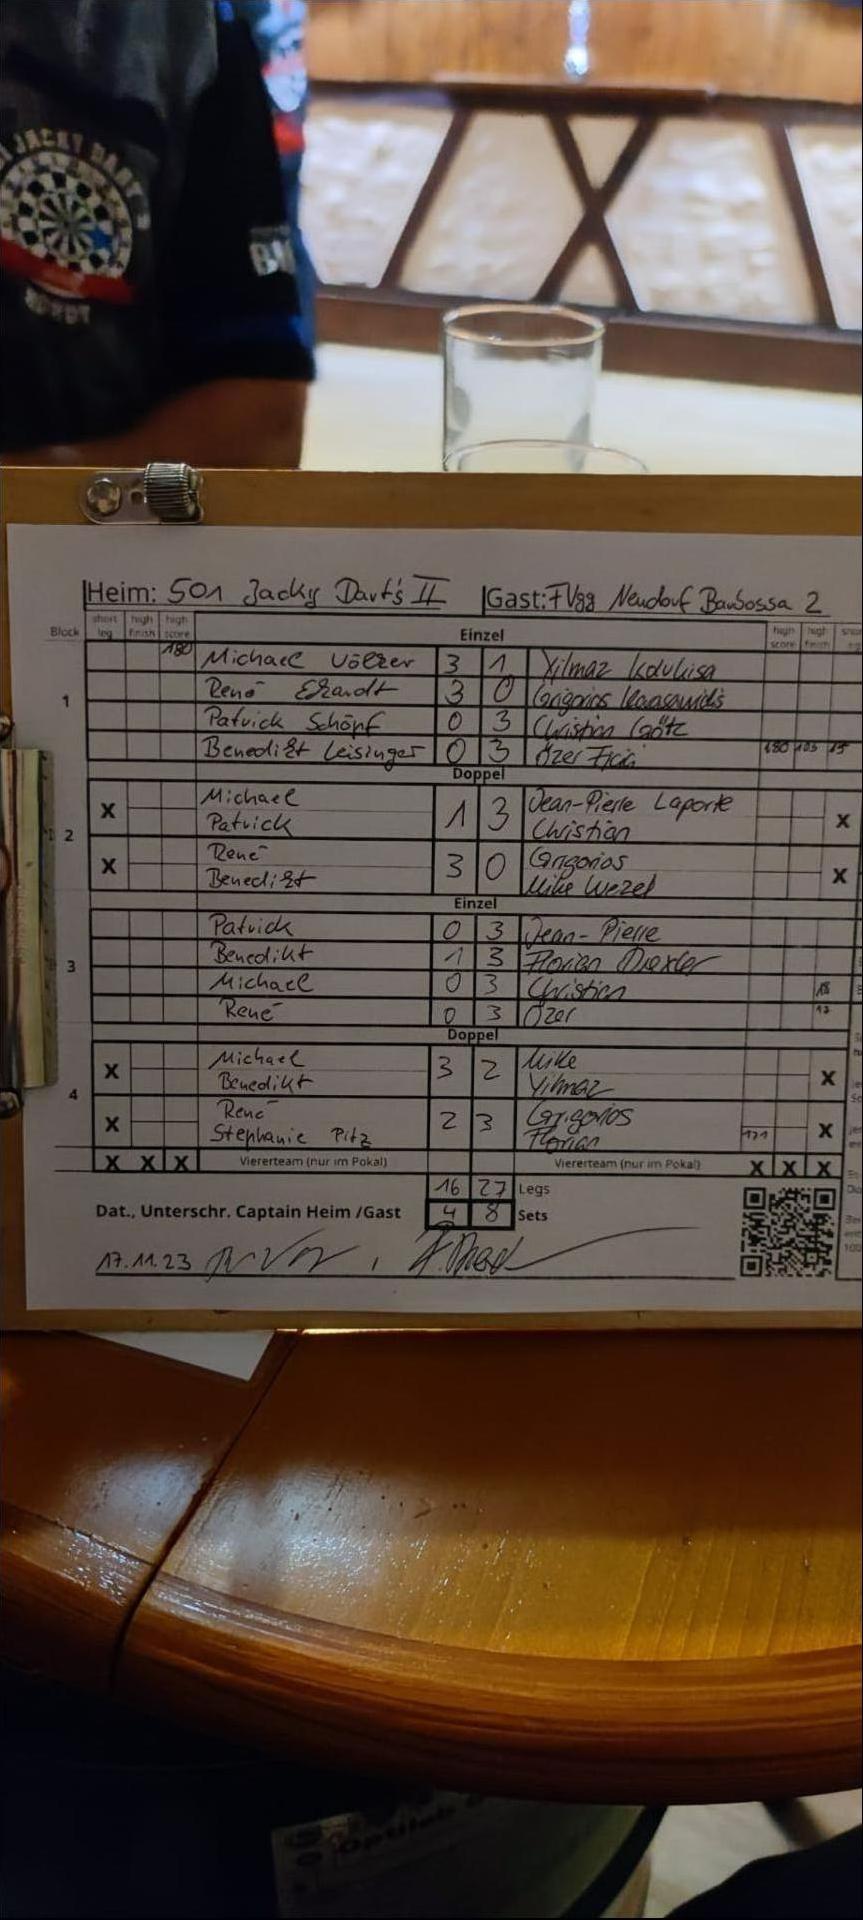 JACKY DART'S
Heim: 501 Jacky Dart's II Gast: FVgg Neudorf Barbossa 2
Block short leg high finish high score Einzel high score high finish
1
180 Michael Völker 3 1 Yilmaz
René Erhardt 3 0 Grigorios
Patrick Schöpf 0 3 Christian Götz
Benedikt Leisinger 0 3 Özer 180 103 15
Doppel
2
X Michael Patrick 1 3 Jean-Pierre Laporte Christian X
X René Benedikt 3 0 Grigorios Mike Wezel X
Einzel
3
Patrick 0 3 Jean-Pierre
Benedikt 1 3 Florian Drexler
Michael 0 3 Christian 18
René 0 3 Özer 17
Doppel
4
X Michael Benedikt 3 2 Mike Yilmaz X
X René Stephanie Pitz 2 3 Grigorios Florian 171 X
X X X Viererteam (nur im Pokal) Viererteam (nur im Pokal) X X X
16 27 Legs
Dat., Unterschr. Captain Heim /Gast 4 8 Sets
17.11.23